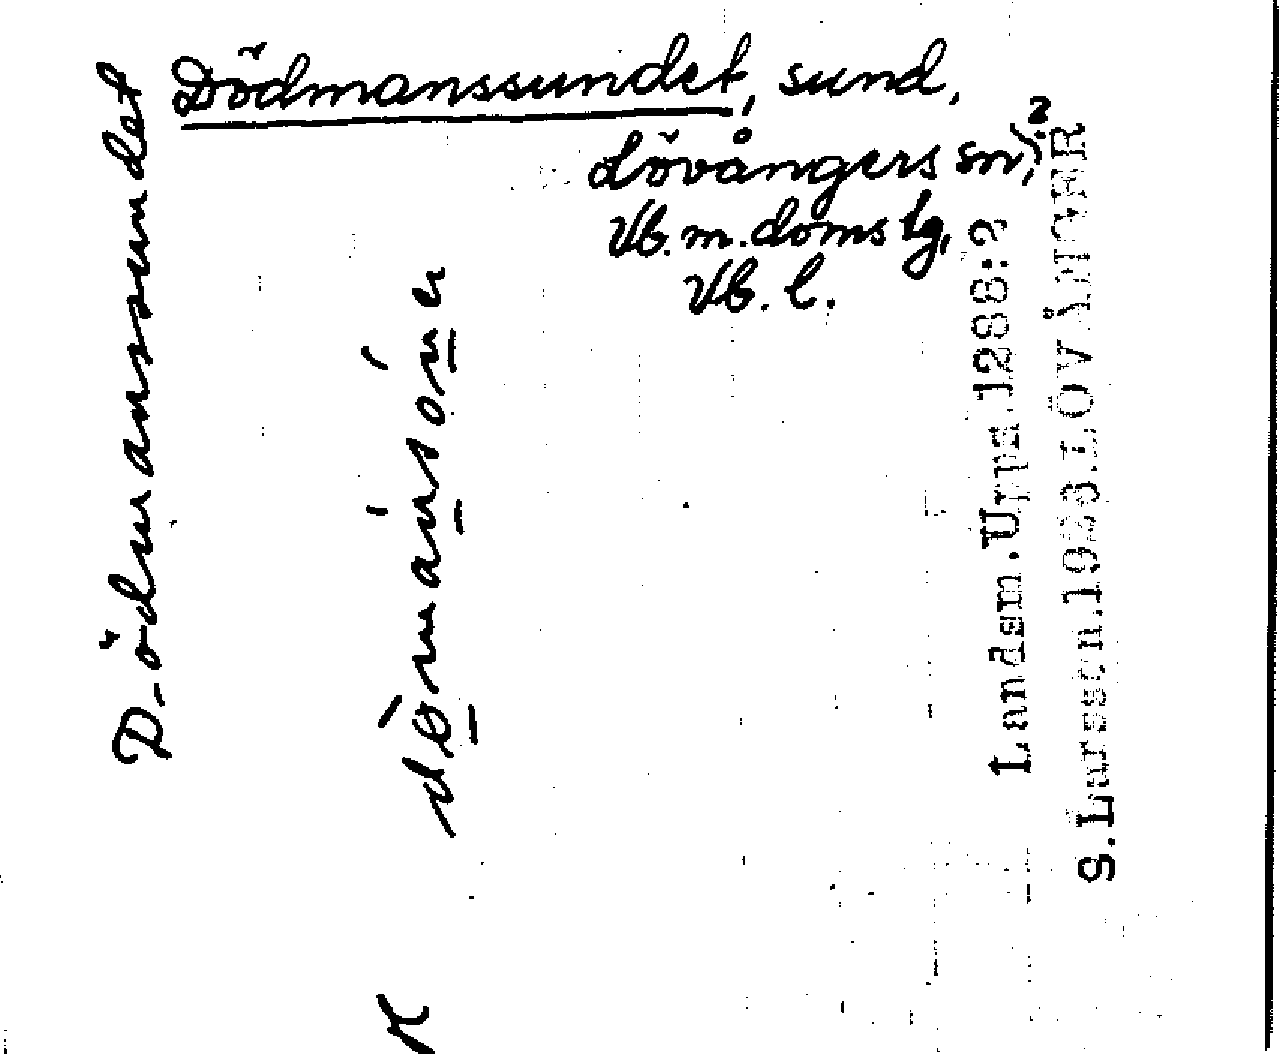 Dödmanssundet, sund,
Lövångers sn,
Vb. m. doms lg,
Vb. l.
Dödmanssundet
Landsm. Upps. 1288:2
S. Larsson. 1928. LÖVÅNGER